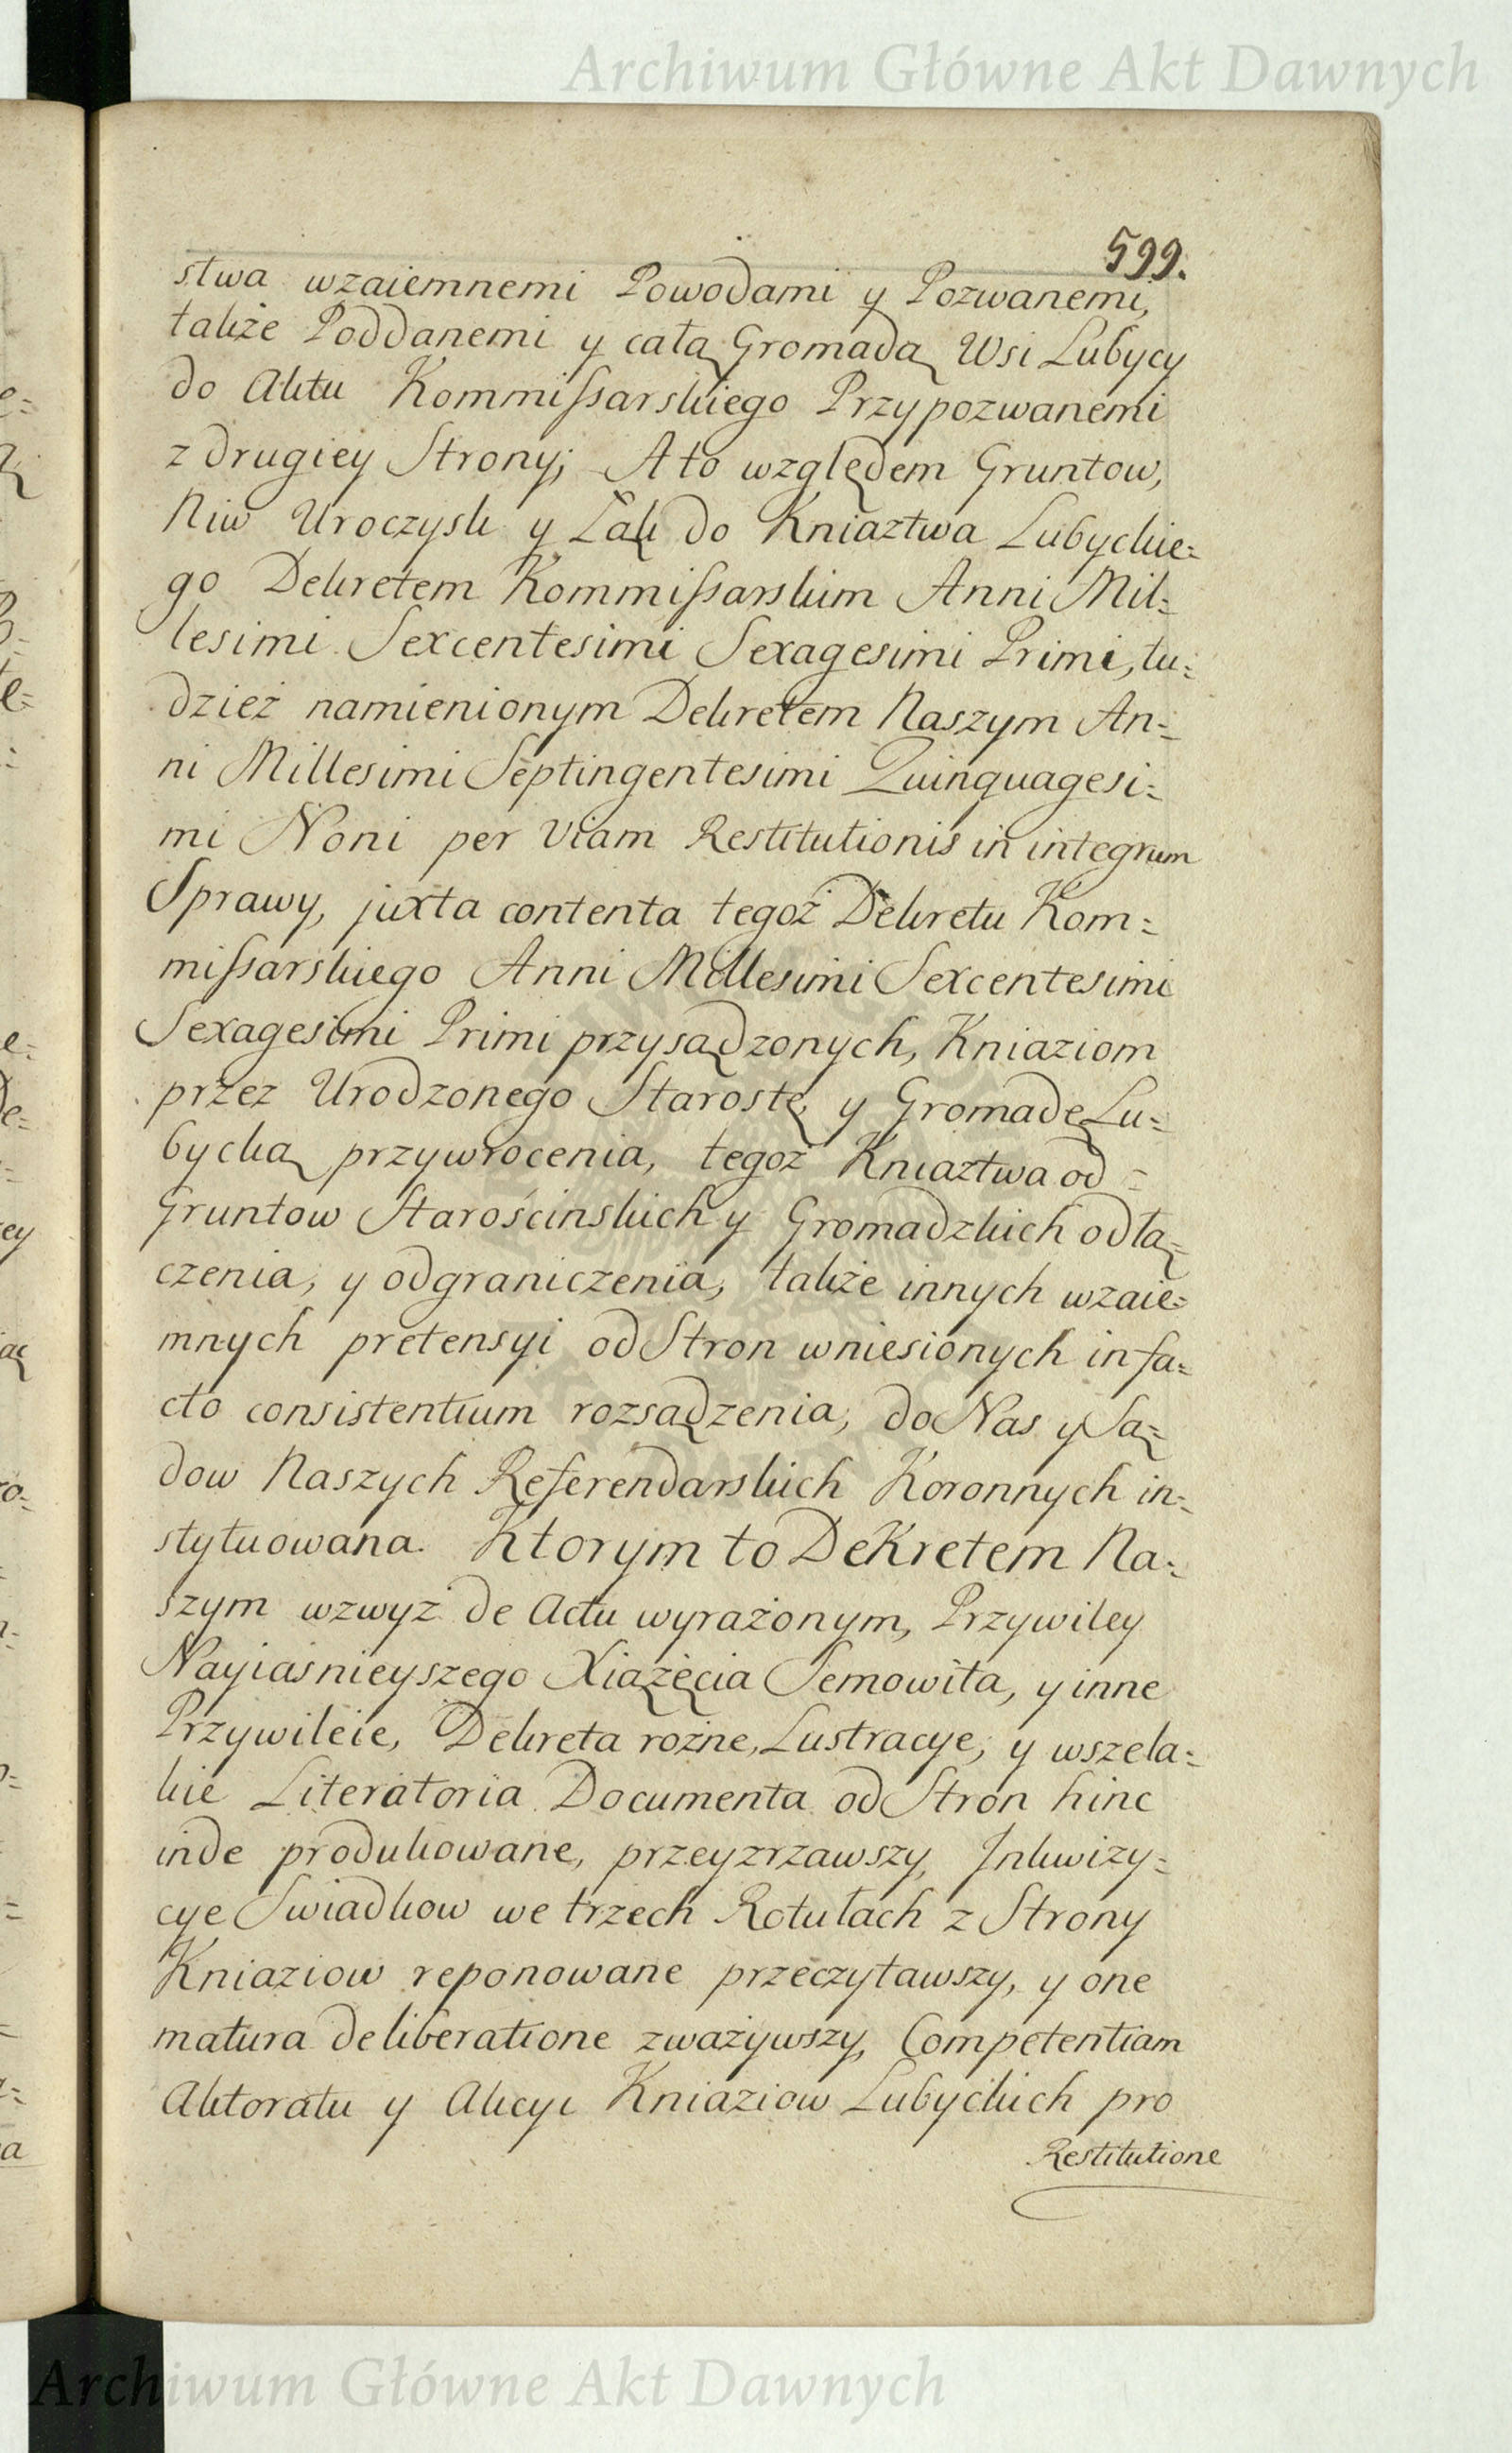 Archiwum Główne Akt Dawnych
599.
stwa wzaiemnemi Powodami y Pozwanemi,
także Poddanemi y całą Gromadą Wsi Lubycy
do Aktu Kommissarskiego Przypozwanemi
z drugiey Strony; A to względem Gruntow,
Niw Uroczysk y Łąk do Kniaztwa Lubyckie=
go Dekretem Kommissarskim Anni Mil=
lesimi Sexcentesimi Sexagesimi Primi, tu=
dzież namienionym Dekretem Naszym An=
ni Millesimi Septingentesimi Quinquagesi=
mi Noni per Viam Restitutionis in integrum
Sprawy, juxta contenta tegoż Dekretu Kom=
missarskiego Anni Millesimi Sexcentesimi
Sexagesimi Primi przysądzonych, Kniaziom
przez Urodzonego Starostę y Gromadę Lu=
bycką przywrocenia, tegoż Kniaztwa od =
Gruntow Starościnskich y Gromadzkich odłą=
czenia, y odgraniczenia, także innych wzaie=
mnych pretensyi od Stron wniesionych in fa=
cto consistentium rozsądzenia, do Nas y Są=
dow Naszych Referendarskich Koronnych in=
stytuowana. Ktorym to Dekretem Na=
szym wzwyż de Actu wyrażonym, Przywiley
Nayiasnieyszego Xiążęcia Semowita, y inne
Przywileie, Dekreta rożne, Lustracye, y wszela=
kie Literatoria Documenta od Stron hinc
inde produkowane, przeyzrzawszy, Inkwizy=
cye Swiadkow we trzech Rotułach z Strony
Kniaziow reponowane przeczytawszy, y one
matura deliberatione zważywszy, Competentiam
Aktoratu y Akcyi Kniaziow Lubyckich pro
Restitutione
Archiwum Główne Akt Dawnych